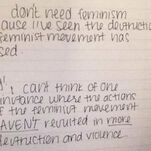 don't need feminism
ause i've seen the destruction
feminist movement has
sed.
i cant think of one
instance where the actions
f the feminist movement
HAVENT resulted in more
destruction and violence.